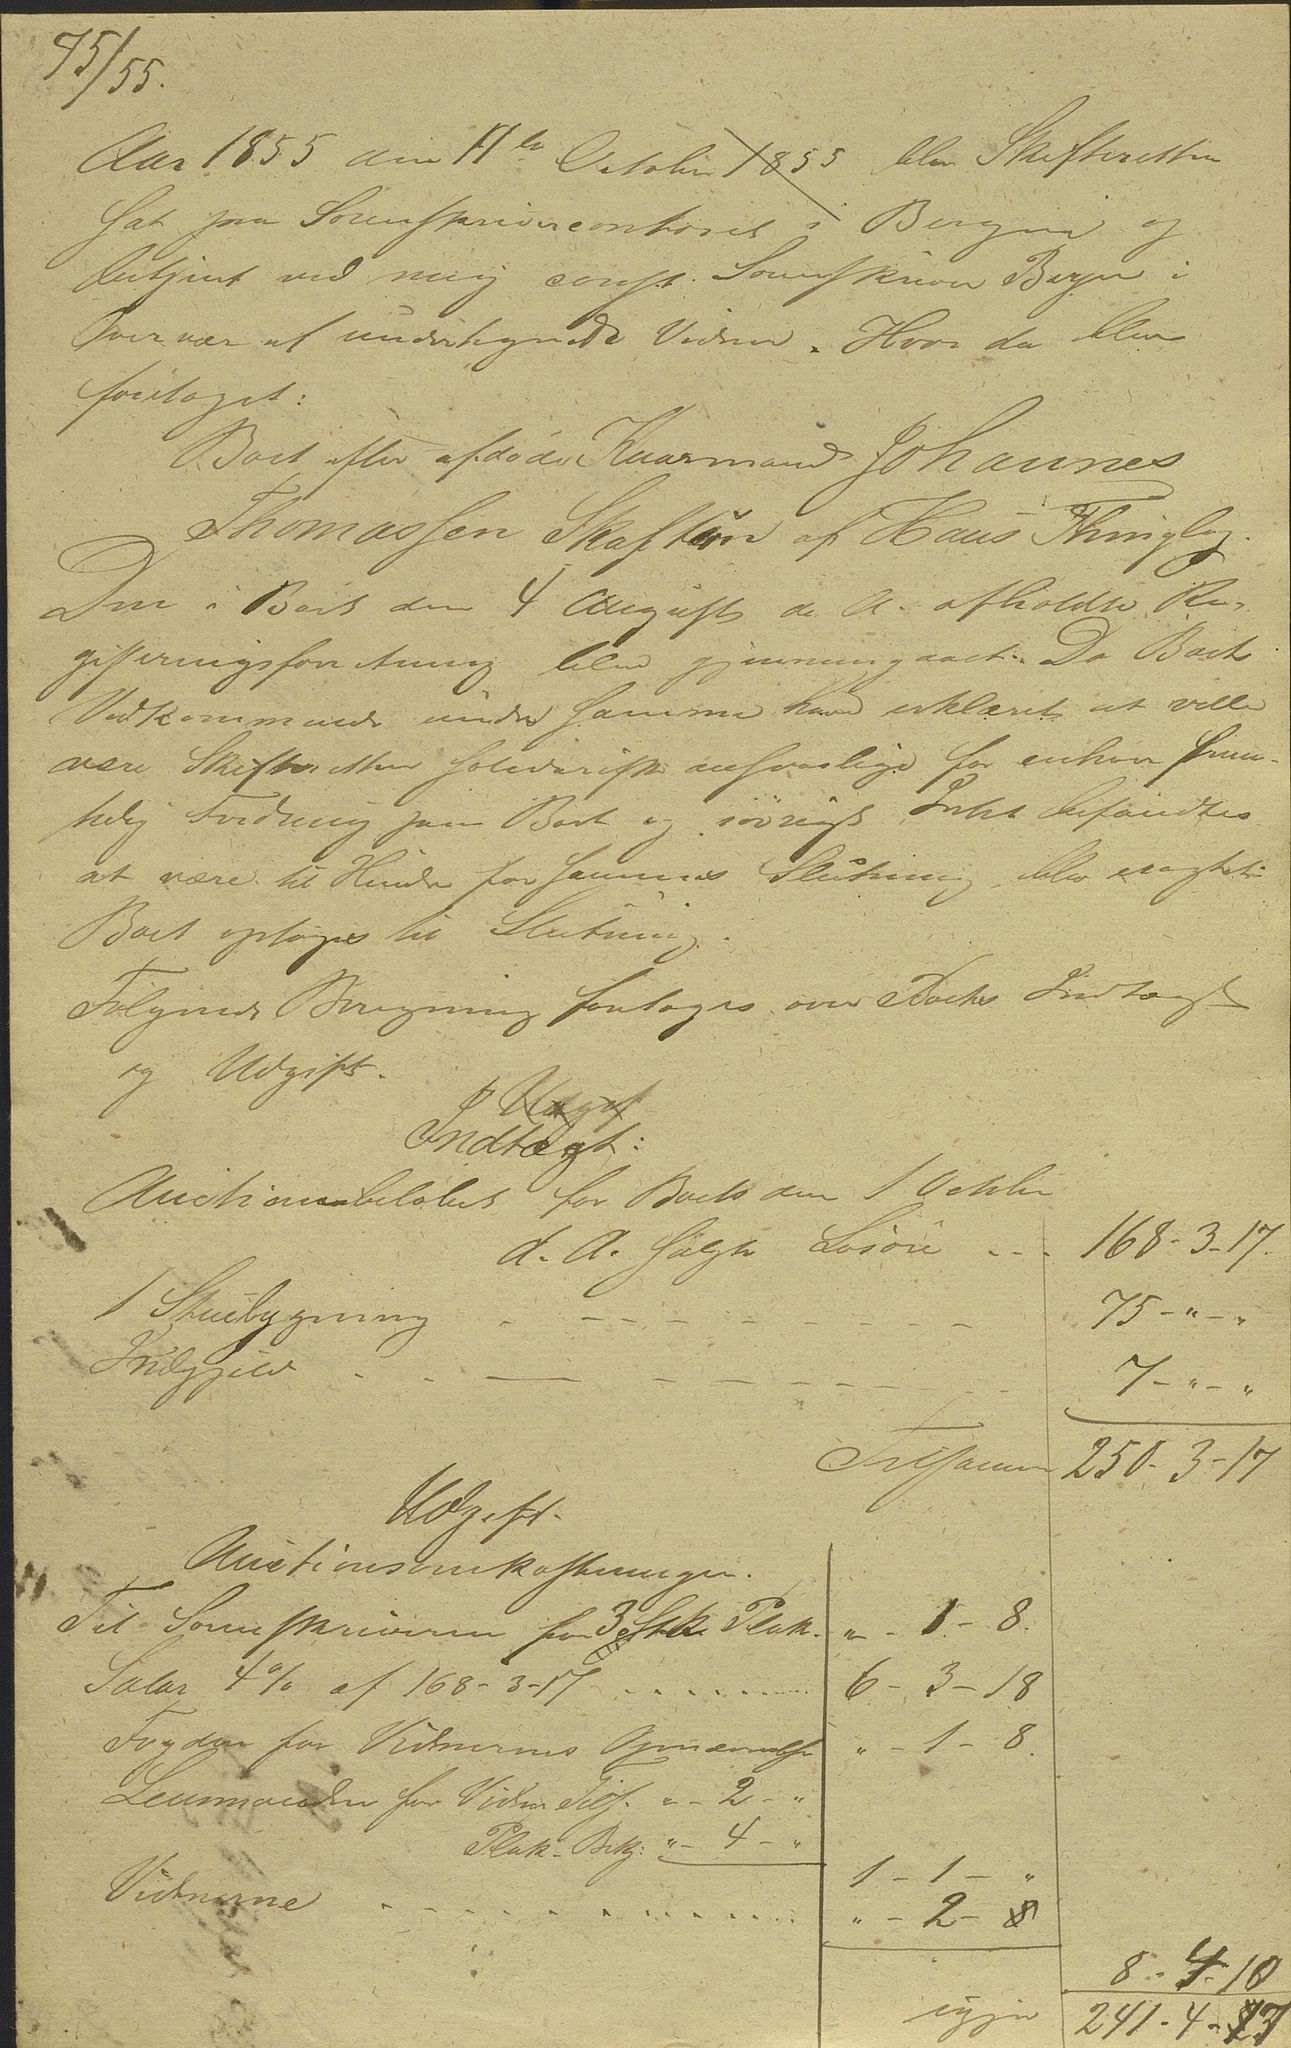 75/55.
Aar 1855 den 11te October 1855 blev Skifteretten
sat paa Sorenskrivercontoret i Bergen og
betjent ved mig const. Sorenskriver Beyer i
Overvær af undertegnede Vidner. Hvor da blev
foretaget:
Boet efter afdøde Kaarmand Johannes
Thomassen Skaftun af Haus Thinglag.
Den i Boet den 4 August d. A. afholdte Re-
gistreringsforretning blev gjennemgaaet. Da Boets
Vedkommende under samme have erklæret at ville
være Skifteretten solidarisk ansvarlige for enhver frem-
tidig Fordring paa Boet og iøvrigt Intet befandtes
at være til Hinder for sammes Slutning, blev eragtet:
Boet optages til Slutning.
Følgende Beregning foretoges over Boets Indtægt
og Udgift.
Udgif
Indtægt:
Auctionsbeløbet for Boets den 1 October
d. A. solgte Løsøre - - - 168-3-17.
1 Stuebygning - - - 75-"-"
Indgjeld - - - 7-"-"
Tilsammen 250-3-17
Udgift.
Auctionsomkostninger.
Til Sorenskriveren for 3 Stk. Plak. "-1-8.
Salar 4% af 168-3-17 ..... 6-3-18
Fogden for Vidnernes Opnævnelse "-1-8.
Lensmanden for Vidne Tils. "-2-"
Plak. Bekj: "-4-"
1-1-"
Vidnerne ..... "-2-8
8-4-10
igjen 241-4-23